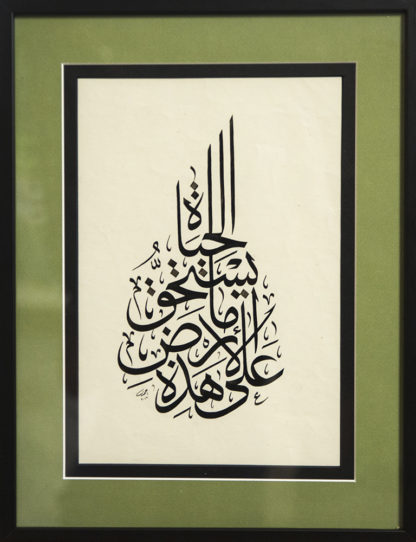 عَلَى هَذِهِ
الأَرْضِ
مَا
يَسْتَحِقُّ
الحَيَاة